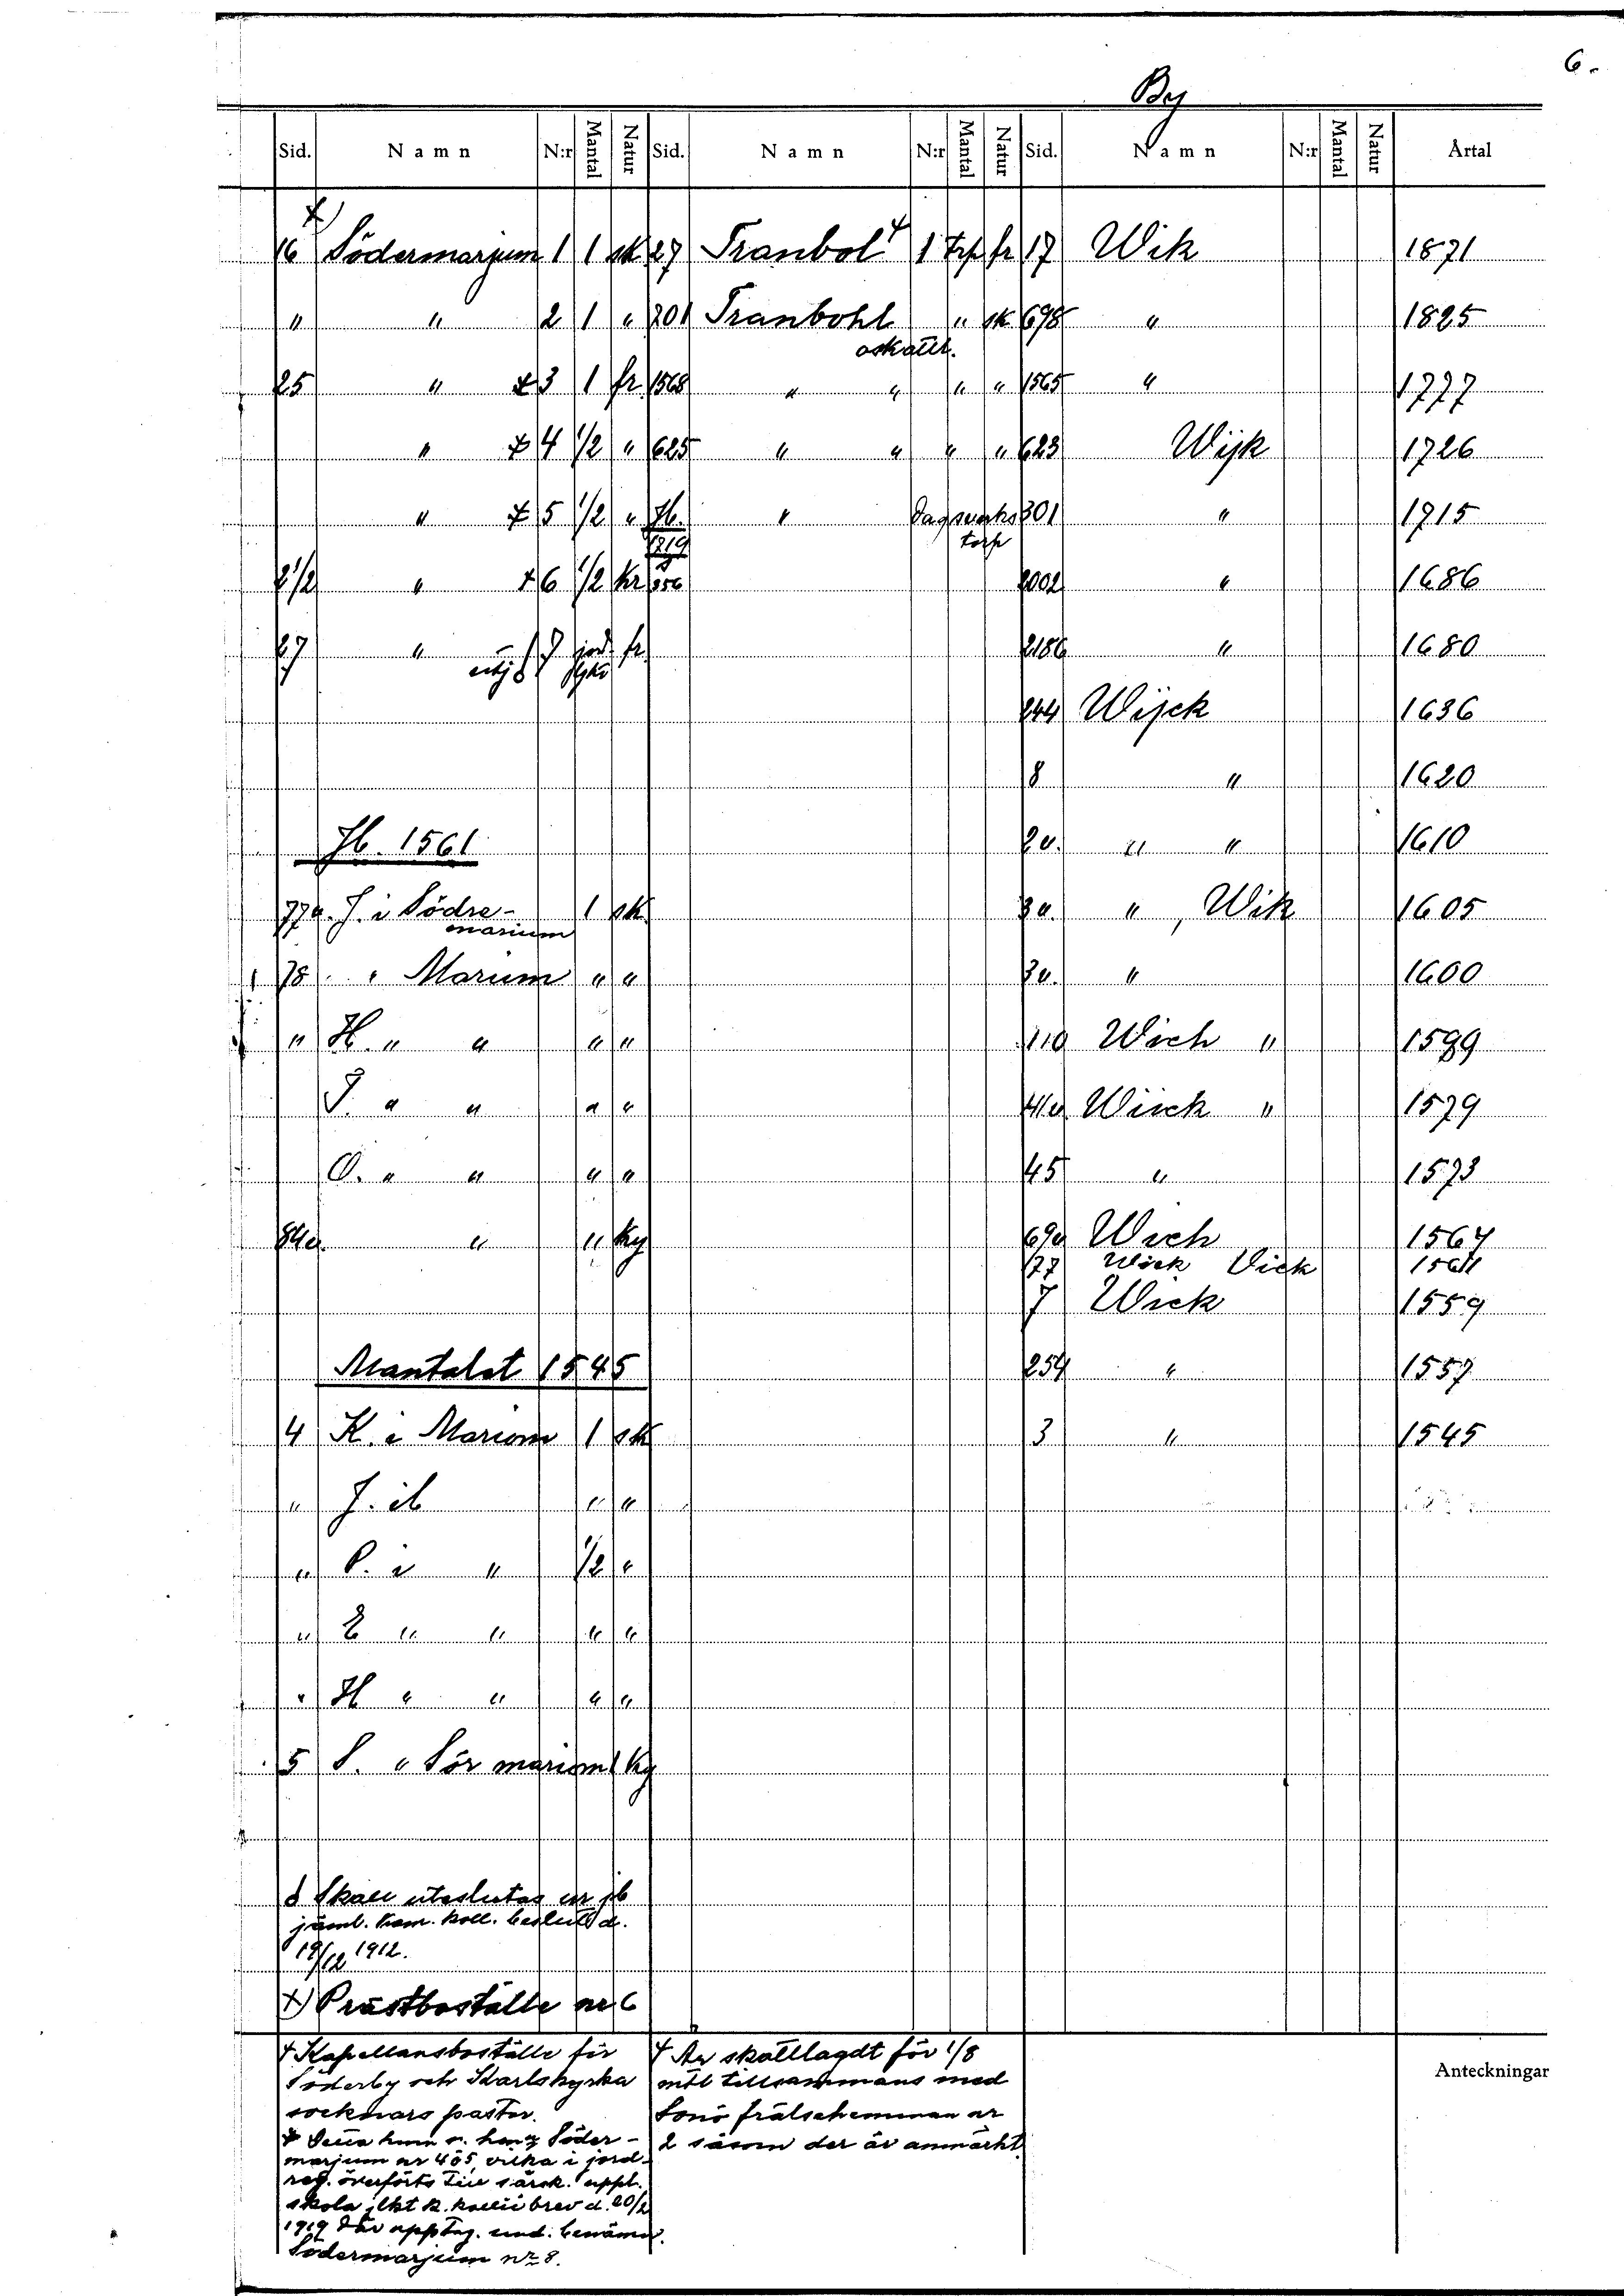 6.
By
Sid. Namn N:r Mantal Natur Sid. Namn N:r Mantal Natur Sid. Namn N:r Mantal Natur Årtal
16 Södermarjum 1 1 sk 27 Tranbol 1 trp fr 17 Wik 1871
" " 2 1 " 201 Tranbohl " sk 698 " 1825
oskattl.
25 " 3 1 fr 1568 " " " " 1565 " 1777
" 4 1/2 " 625 " " " " 623 Wijk 1726
" 5 1/2 " Jb. " Dagsverks 301 " 1715
1719 torp
21/2 " 6 1/2 kr 356 2002 " 1686
27 " 7 jord fr 2186 " 1680
utj 8
244 Wijck 1636
8 " 1620
Jb. 1561 2v. " " 1610
77a. J. i Södre- 1 sk 3a. " , Wik 1605
marium
78 " Marum " " 3v. " 1600
" H. " " " " 110 Wich " 1599
J. " " " " 41a Wiick " 1579
O. " " " " 45 " 1573
84a " " ky 69a Wich 1567
77 Wick Vick 1561
7 Wick 1559
Mantalet 1545 254 " 1557
4 K. i Mariom 1 sk 3 " 1545
" J. ib " "
" P. i " 1/2 "
" E " " " "
" H " " " "
5 S. " Sör mariom 1 ky
Skall uteslutas ur jb
jäml. kam. koll. beslut d.
19/12 1912.
x) Prästboställe nr 6
+ Kapellansboställe för
Söderby och Karlskyrka
socknars pastor.
Södermarjum nr 4 o 5, vilka i jord-
reg. överförts till särsk. uppl.
skola jlkt k. kollii brev d. 20/2
1919 där upptag. und. benämn.
Södermarjum nr 8.
+ Är skattlagdt för 1/8
mtl tillsammans med
Sonö frälsehemman nr
2 såsom der är anmärkt
Anteckningar